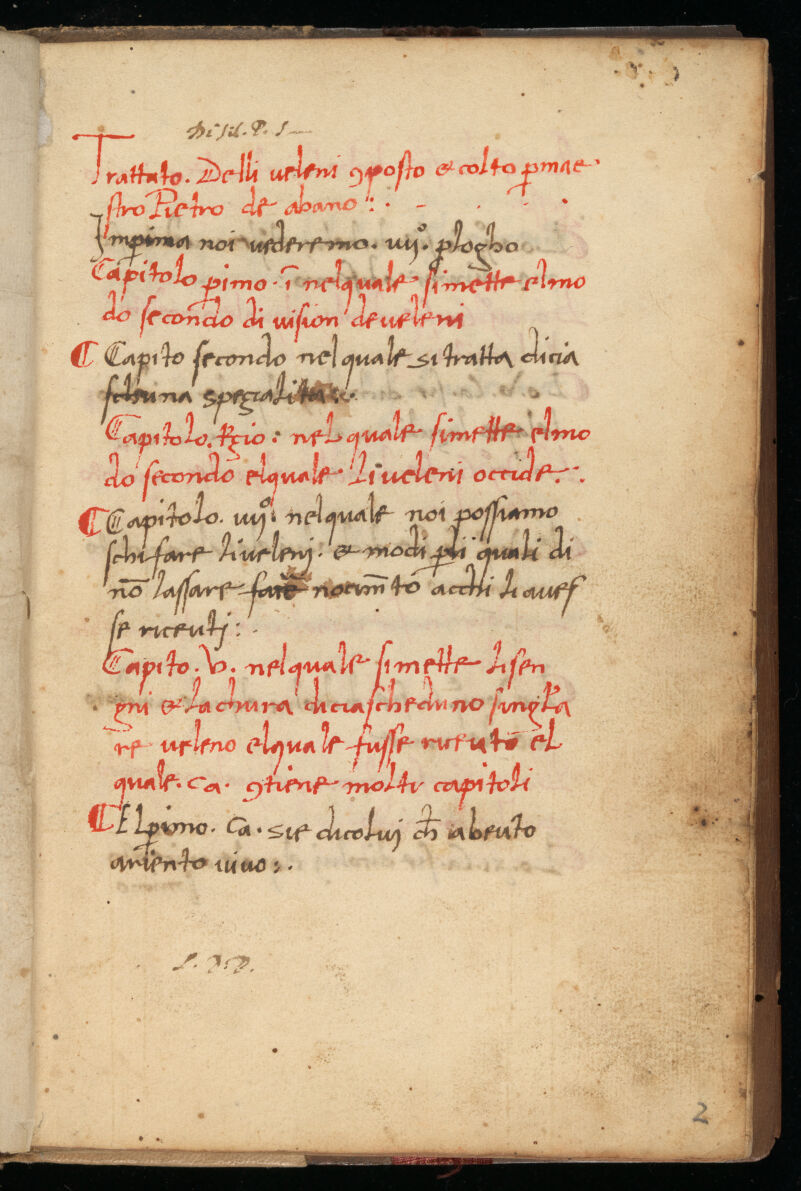 Di Sil. P. S
Trattato. Delli veleni ꝯposto & colto ꝑ mae
stro Pietro de abano : .
Inperima noi vederemo. iiijº. ꝓlogho
Capitolo ꝑimo. ī nelquale simette elmo
do secondo di vision develeni
Capito secondo nelquale sitratta dicia
scheuna spezialita: .
Capitolo. : nel quale simette elmo
do secondo elquale liveleni occide. :
Capitolo. iiijº. nelquale noi possiamo
schifare liveleni: & modi ꝑ li quali di
nō lassare fare nocim̄to acchi li aves
se riceuti: .
Capito. V. nelquale simette lisen
gni & lachura diciascheduno singl̄a
re veleno elquale fusse riceuto el
quale. Ca. ꝯtiene molti capitoli
El ꝑimo. Ca. sie dicoluj ch̄ abeuto
ariento vivo: .
S. D. D.
2